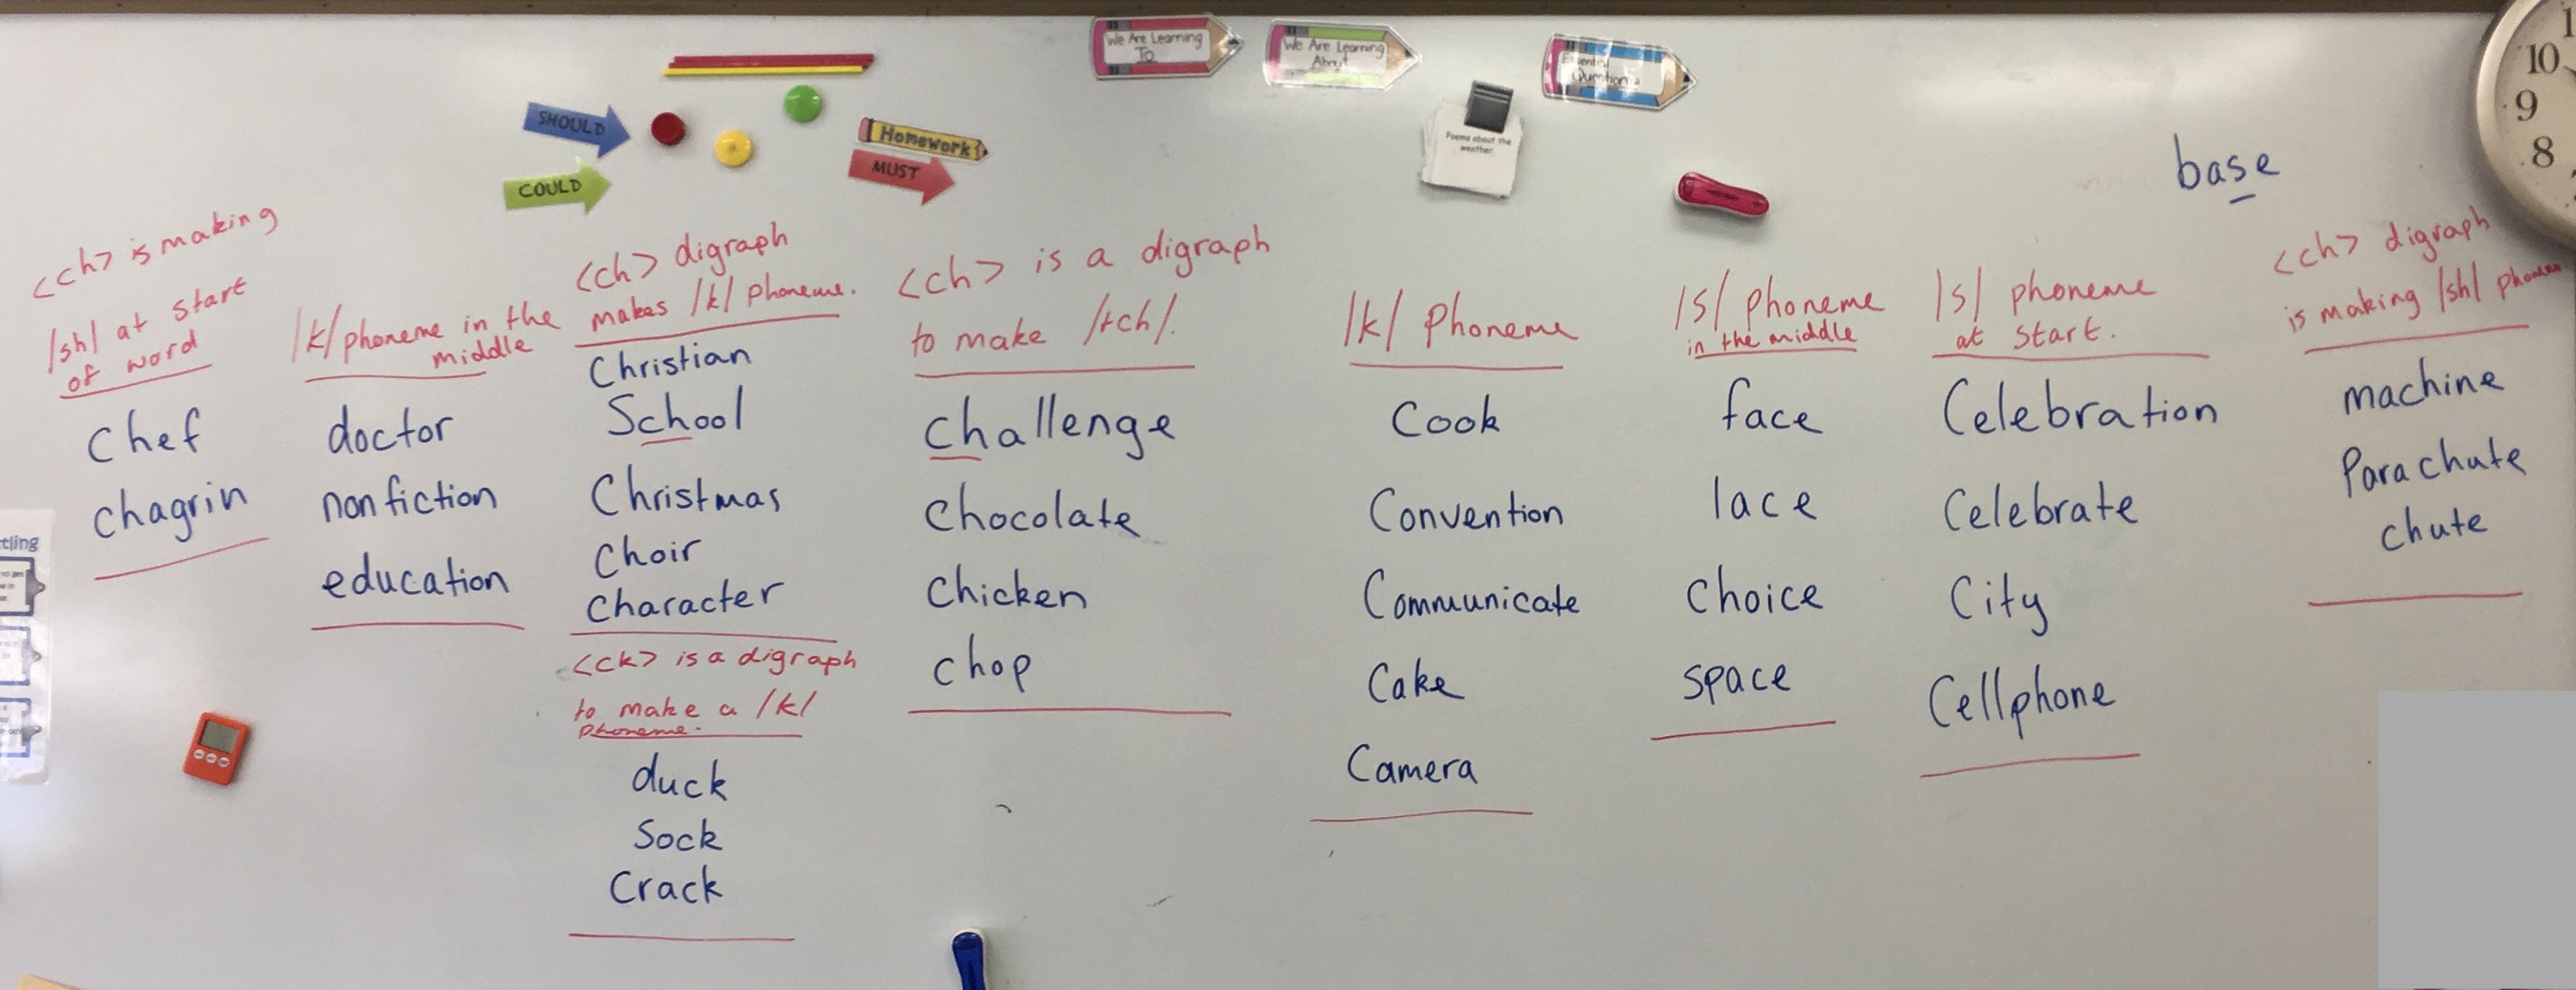 We Are Learning
To
We Are Learning
About
Essential
Questions
SHOULD
COULD
Homework
MUST
Poems about the
weather.
10
9
8
base
<ch> is making
/sh/ at start
of word
Chef
chagrin
/k/ phoneme in the
middle
doctor
nonfiction
education
<ch> digraph
makes /k/ phoneme.
Christian
School
Christmas
Choir
Character
<ck> is a digraph
to make a /k/
phoneme.
duck
Sock
Crack
<ch> is a digraph
to make /tch/.
challenge
Chocolate
Chicken
chop
/k/ phoneme
Cook
Convention
Communicate
Cake
Camera
/s/ phoneme
in the middle
face
lace
choice
space
/s/ phoneme
at start.
Celebration
Celebrate
City
Cellphone
<ch> digraph
is making /sh/
machine
Parachute
chute
tling